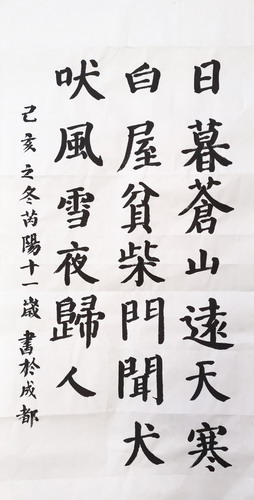 日暮蒼山遠天寒
白屋貧柴門聞犬
吠風雪夜歸人
己亥之冬芮陽十一歲書於成都